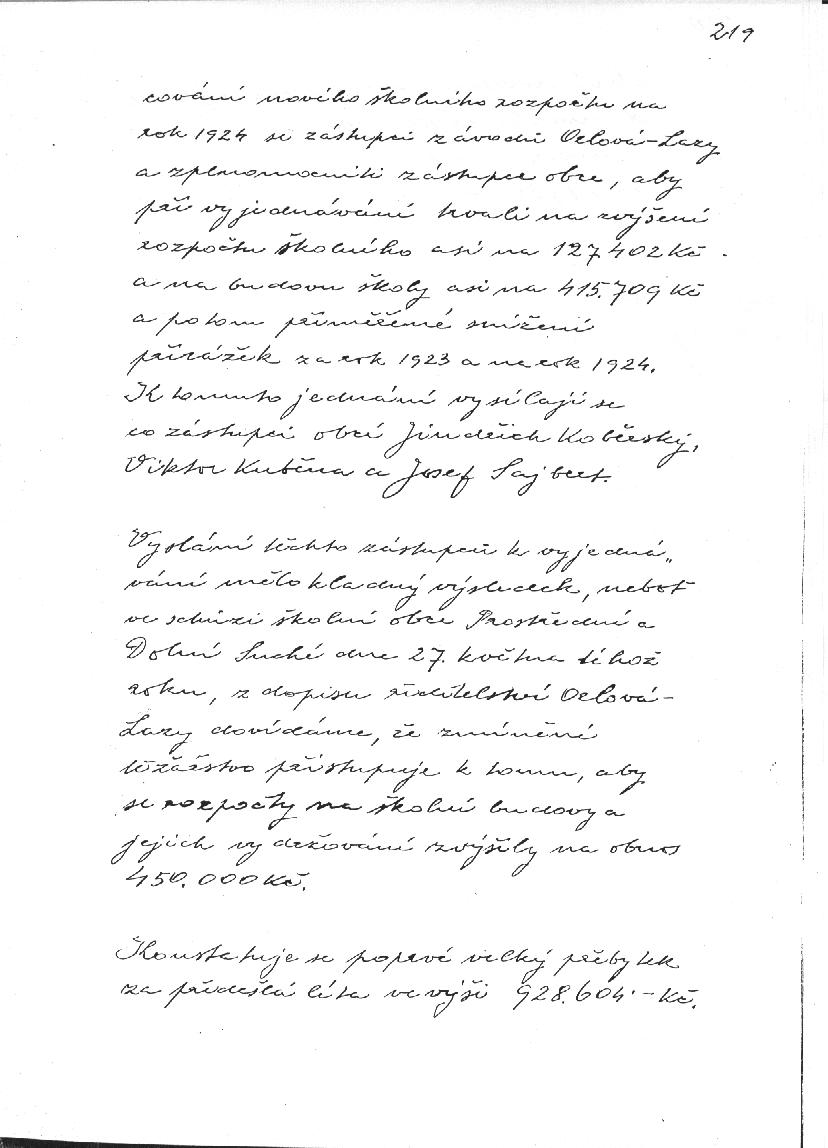 219
cování nového školního rozpočtu na
rok 1924 se zástupci závodů Orlová-Lazy
a zplnomocnili zástupce obce, aby
při vyjednávání trvali na zvýšení
rozpočtu školního asi na 127.402 Kč
a na budovu školy asi na 415.709 Kč
a potom přiměřené snížení
přirážek za rok 1923 a ne rok 1924.
K tomuto jednání vysílají se
co zástupci obcí Jindřich Kobřeský,
Viktor Kuběna a Josef Sajbert.
Vyslání těchto zástupců k vyjedná„
vání mělo kladný výsledek, neboť
ve schůzi školní obce Prostřední a
Dolní Suché dne 27. května téhož
roku, z dopisu ředitelství Orlová-
Lazy dovídáme, že zmíněné
těžařstvo přistupuje k tomu, aby
se rozpočty na školní budovy a
jejich vydržování zvýšily na obnos
450.000 Kč.
Konstatuje se poprvé velký přebytek
za předešlá léta ve výši 928.604·- Kč.